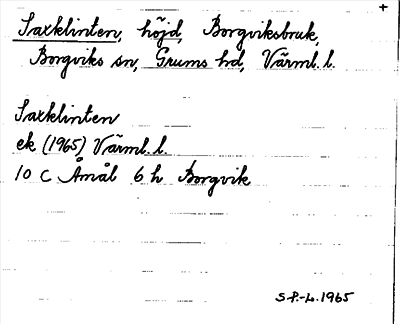 +
Saxklinten, höjd, Borgviksbruk,
Borgviks sn, Grums hd, Värml. l.
Saxklinten
ek (1965) Värml. l.
10 C Åmål 6 h Borgvik
S P.-L. 1965